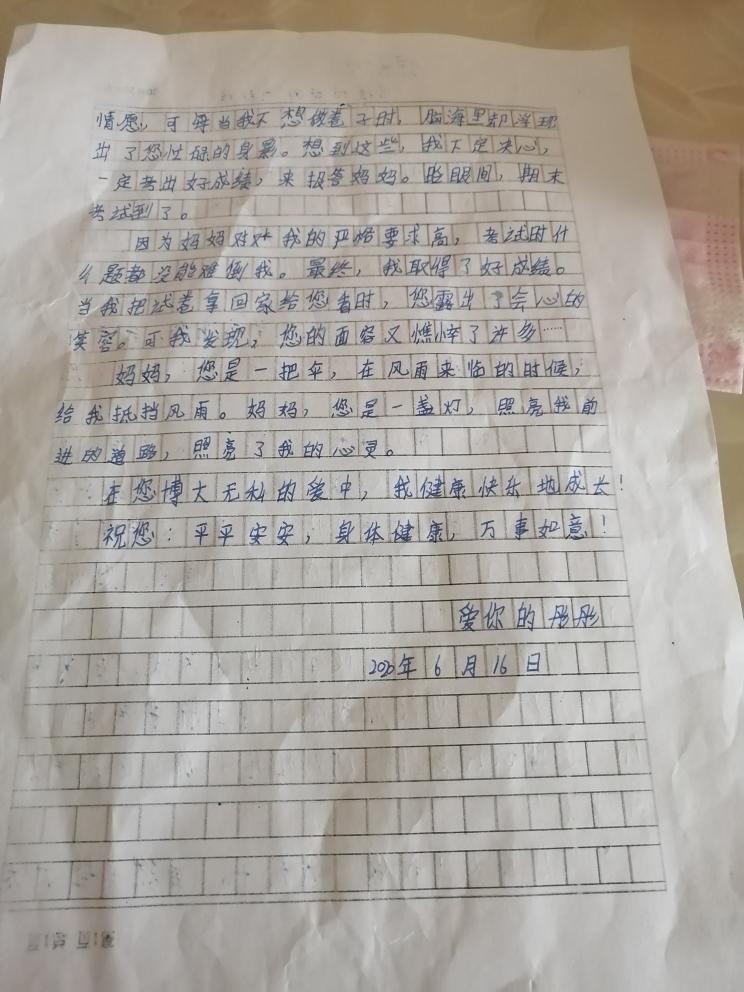 情愿，可每当我不想做卷子时，脑海里却浮现
出了您忙碌的身影。想到这些，我下定决心，
一定考出好成绩，来报答妈妈。眨眼间，期末
考试到了。
因为妈妈对我的严格要求高，考试时什
么题都没能难倒我。最终，我取得了好成绩。
当我把试卷拿回家给您看时，您露出了会心的
笑容。可我发现，您的面容又憔悴了许多……
妈妈，您是一把伞，在风雨来临的时候，
给我抵挡风雨。妈妈，您是一盏灯，照亮我前
进的道路，照亮了我的心灵。
在您博大无私的爱中，我健康快乐地成长！
祝您：平平安安，身体健康，万事如意！
爱你的彤彤
2020年6月16日
第1页 总1页